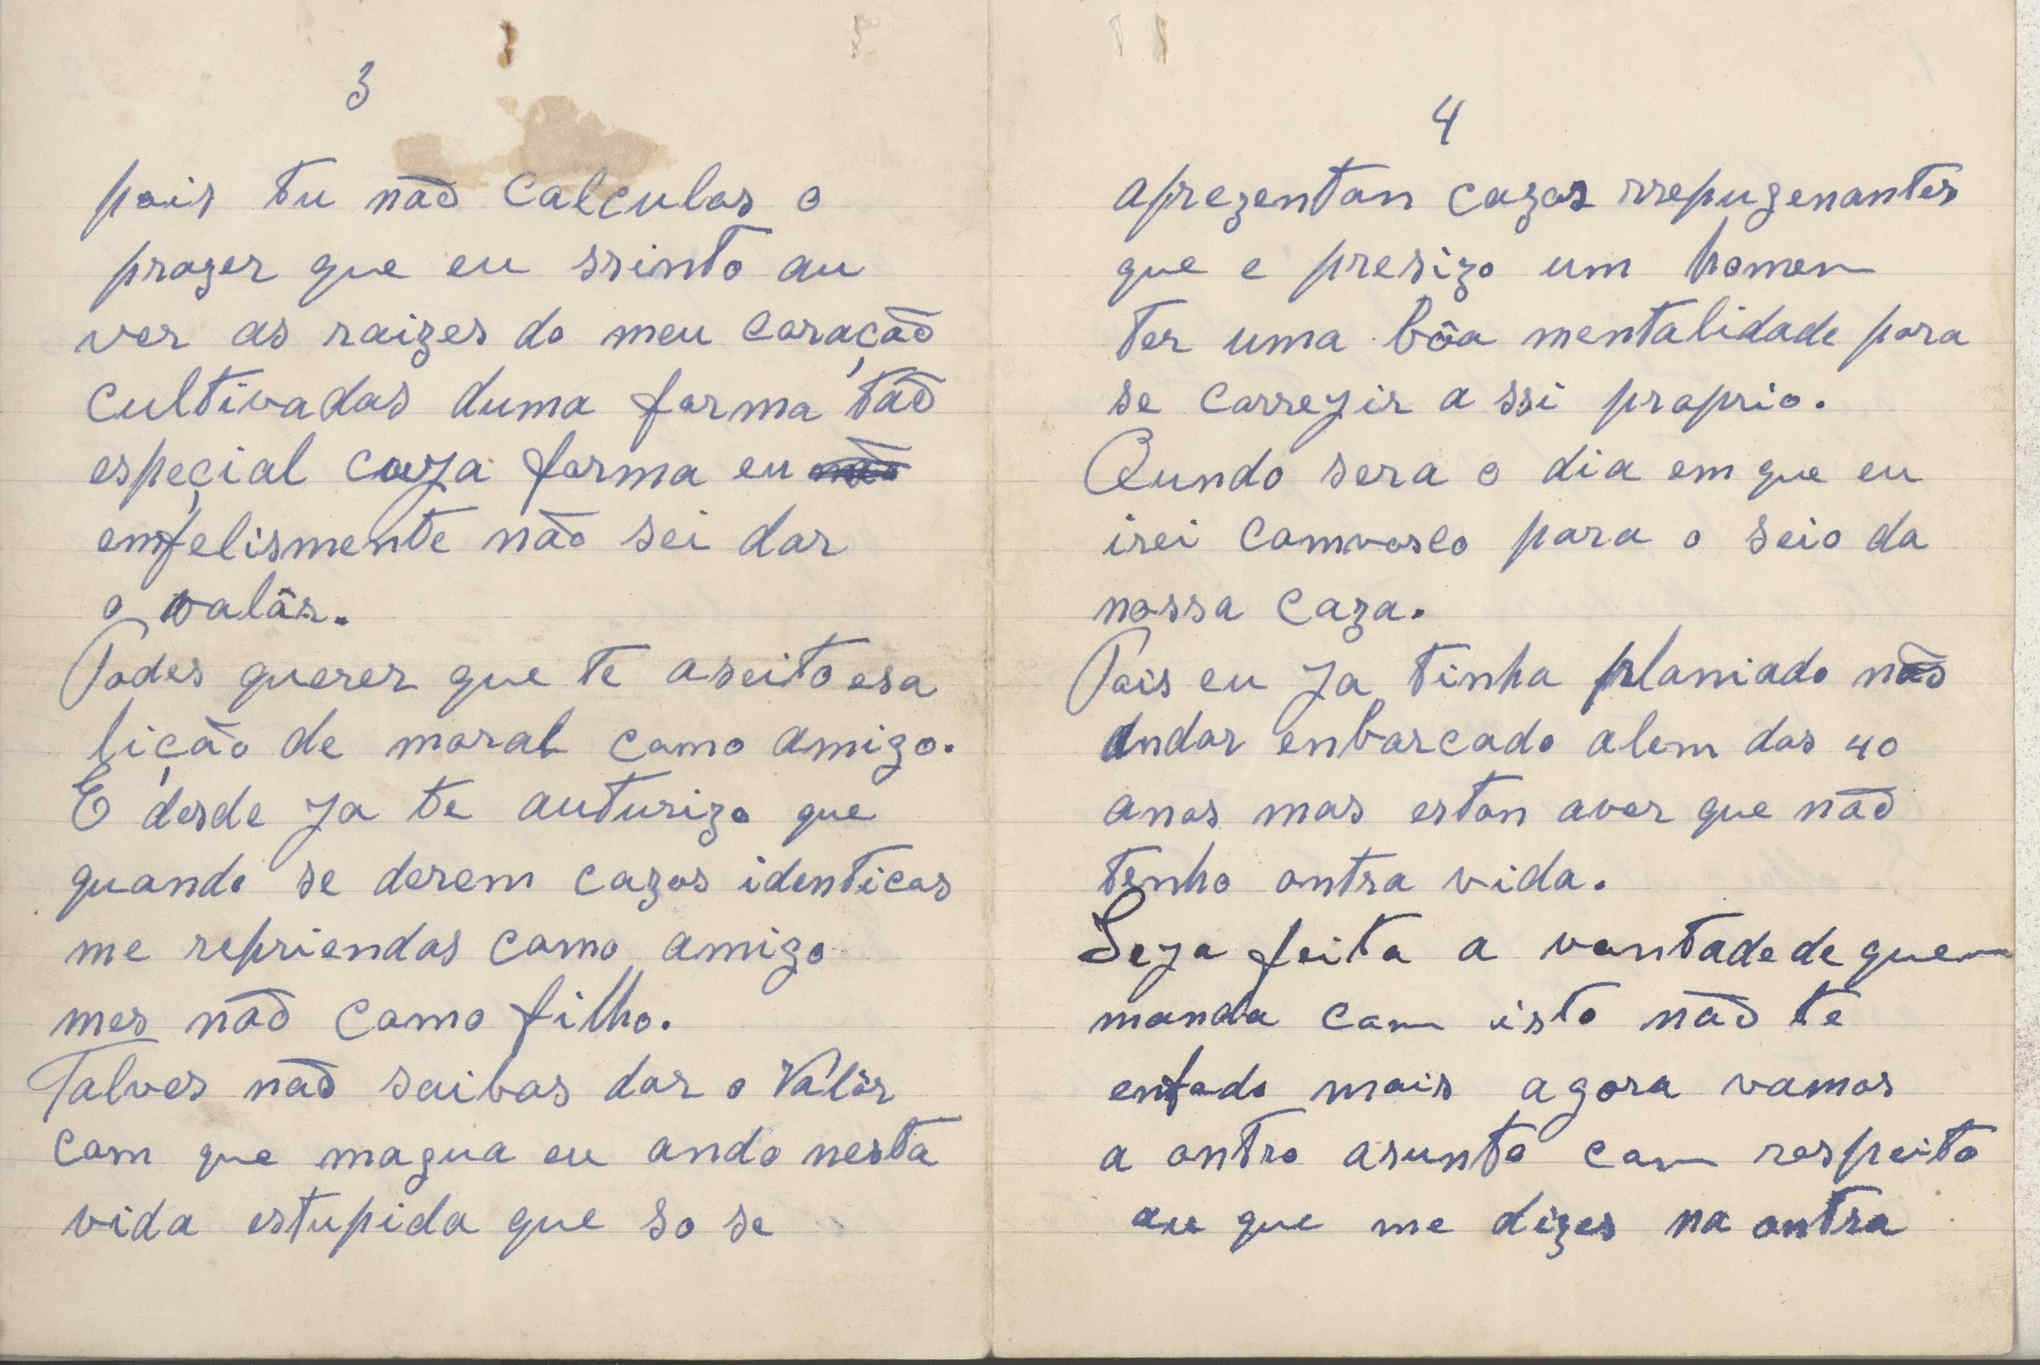 3
pois tu não calculas o
prazer que eu ssinto au
ver as raizes do meu coração
cultivadas duma forma tão
espeçial cuja forma eu
emfelismente não sei dar
o valôr.
Podes querer que te aseito esa
lição de moral como amigo.
E desde ja te auturizo que
quando se derem cazos identicos
me repriendas como amigo
mes não como filho.
Talves não saibas dar o valôr
com que magua eu ando nesta
vida estupida que so se
4
aprezentan cazos rrepugenantes
que e presizo um homem
ter uma bôa mentalidade para
se correjir a ssi proprio.
Qundo sera o dia em que eu
irei comvosco para o seio da
nossa caza.
Pois eu ja tinha planiado não
andar enbarcado alem dos 40
anos mas estou aver que não
tenho outra vida.
Seja feita a vontade de quem
manda com isto não te
enfado mais agora vamos
a outro asunto com respeito
au que me dizes na outra